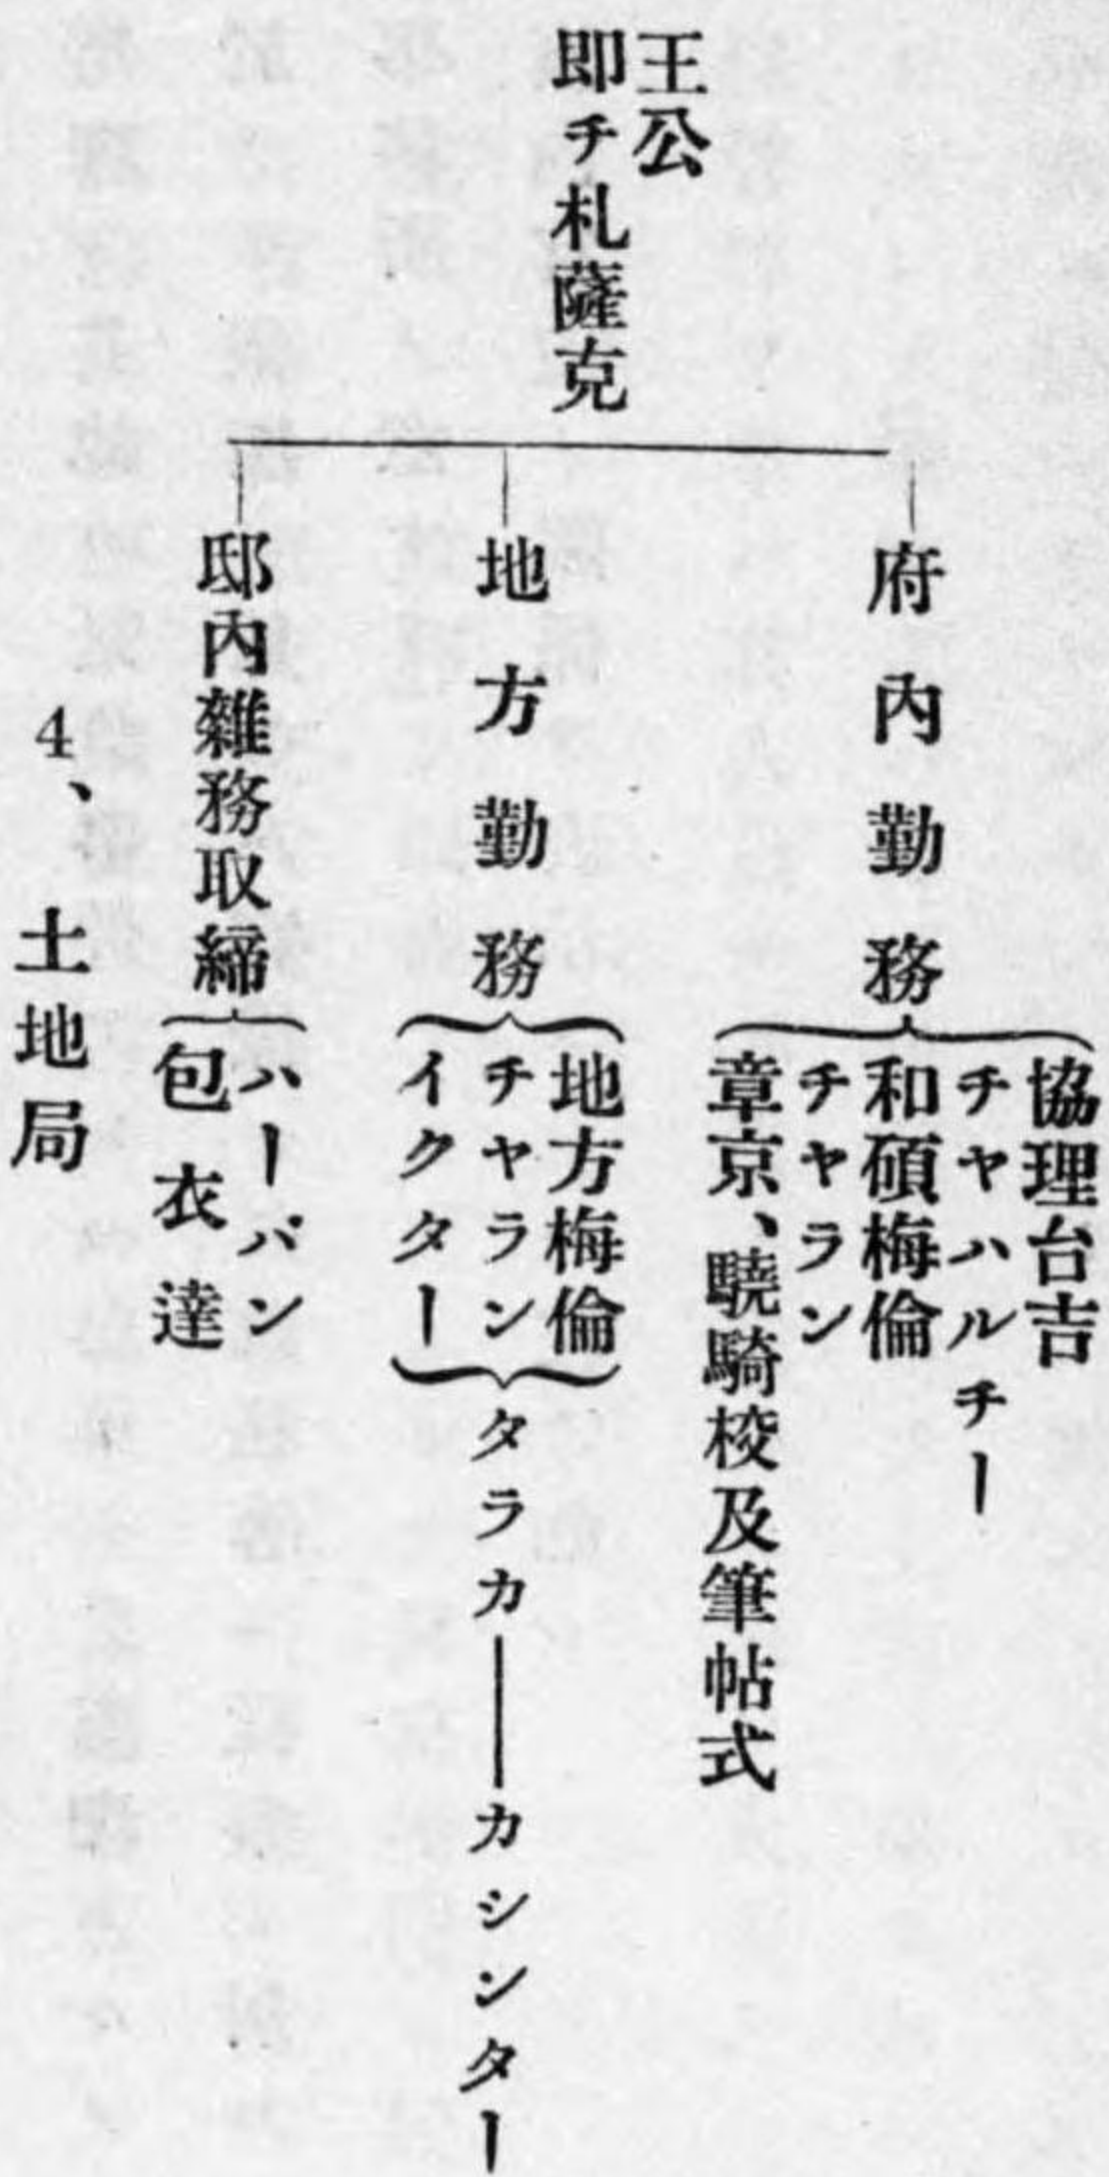 王公
即チ札薩克
府內勤務
協理台吉
チャハルチー
和碩梅倫
チャラン
章京、驍騎校及筆帖式
地方勤務
地方梅倫
チャラン
イクター
タラカ――カシンター
邸內雜務取締
ハーバン
包衣達
4、土地局